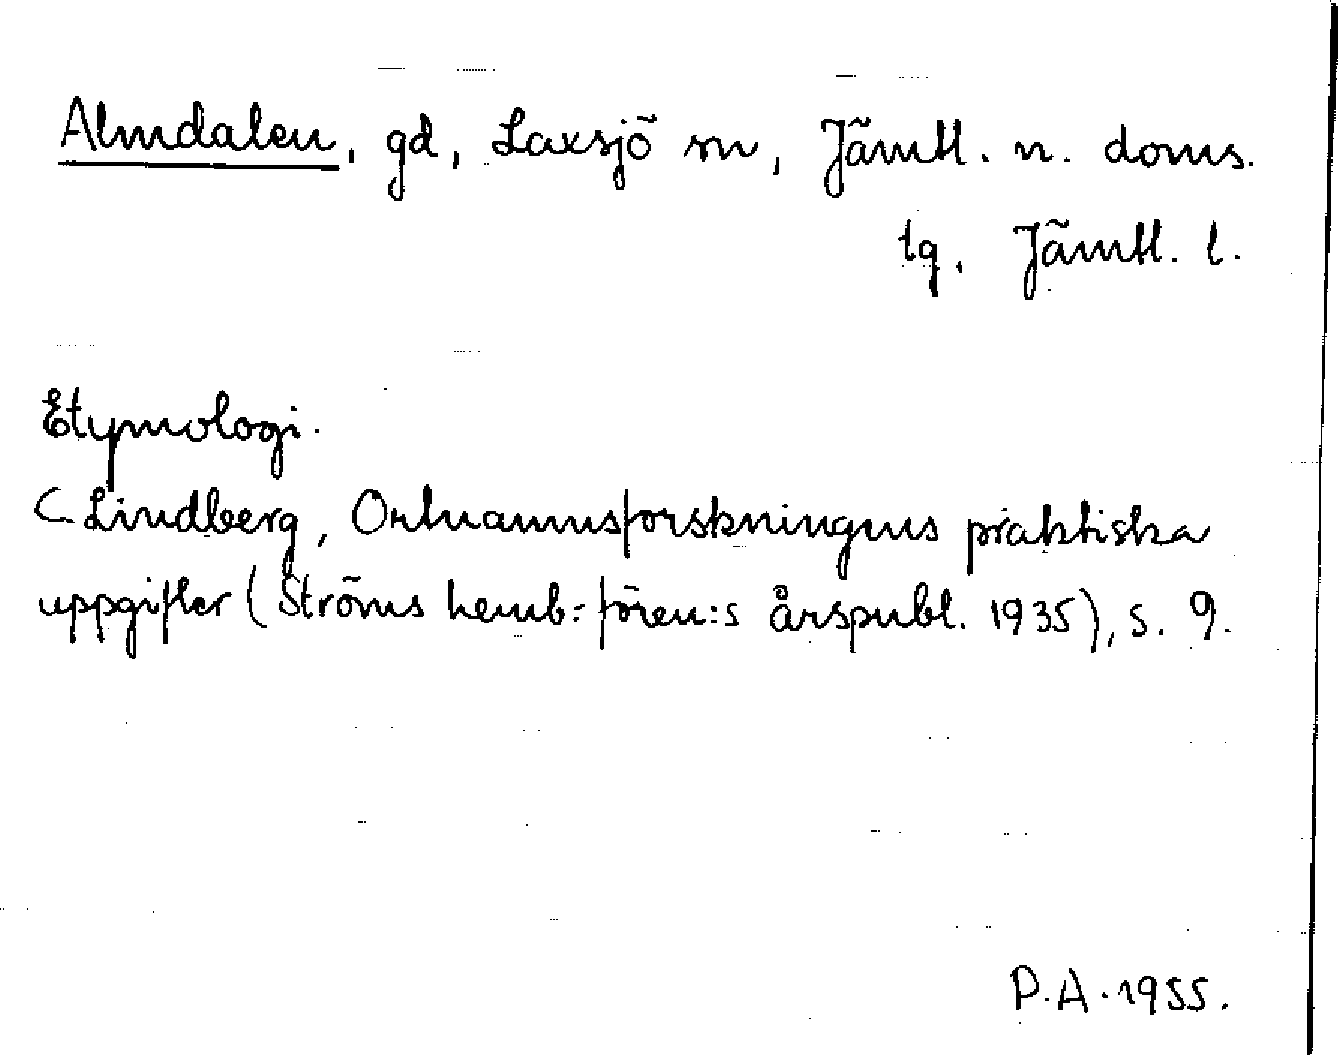 Almdalen, gd, Laxsjö sn, Jämtl. n. doms.
tg, Jämtl. l.
Etymologi.
C Lindberg, Ortnamnsforskningens praktiska
uppgifter (Ströms hemb:fören:s årspubl. 1935), s. 9.
P.A. 1955.